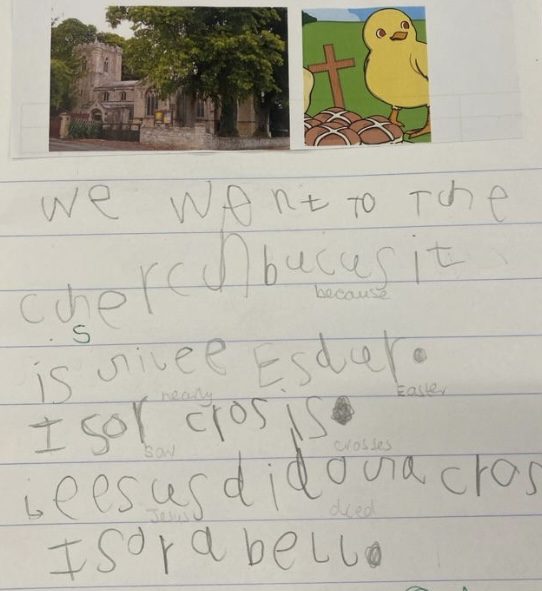 we went to the
cherch bucus it
because
s
is niree Esdur.
nearly Easter
I sor cros is.
saw crosses
jeesus did on a cros
Jesus died
I sor a bell.